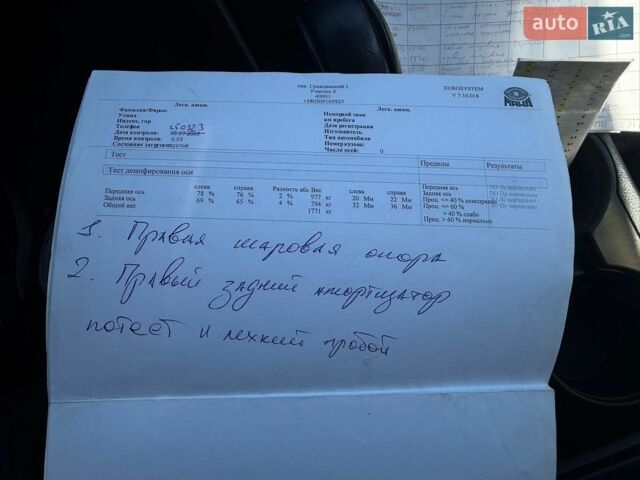 auto RIA.com
пер. Гражданский 1
Участок 4
40001
+380509165927
EUROSYSTEM
V 7.10.018
MAHA
Легк. автом.
Фамилия/Фирма:
Улица
Индекс, гор
Телефон
Дата контроля:
Время контроля: 6:03
Состояние загрузки: пустой
Легк. автом.
Номерной знак
км пробега
Дата регистрации
Изготовитель
Тип автомобиля
Номер кузова:
Число осей: 0
Тест Пределы Результаты
Тест демпфирования оси
слева справа Разность абс Вес слева справа
Передняя ось 78 % 76 % 2 % 977 кг 20 Мм 22 Мм
Задняя ось 69 % 65 % 4 % 794 кг 32 Мм 36 Мм
Общий вес 1771 кг
Передняя ось ПО Лу нормально
Задняя ось ПО Пр нормально
Проц. <= 40 % неисправн ЗО Лу нормально
Проц. <= 60 % ЗО Пр нормально
> 40 % слабо
Проц > 60 % нормально
1. Правая шаровая опора
2. Правый задний амортизатор
потеет и лёхкий пробой